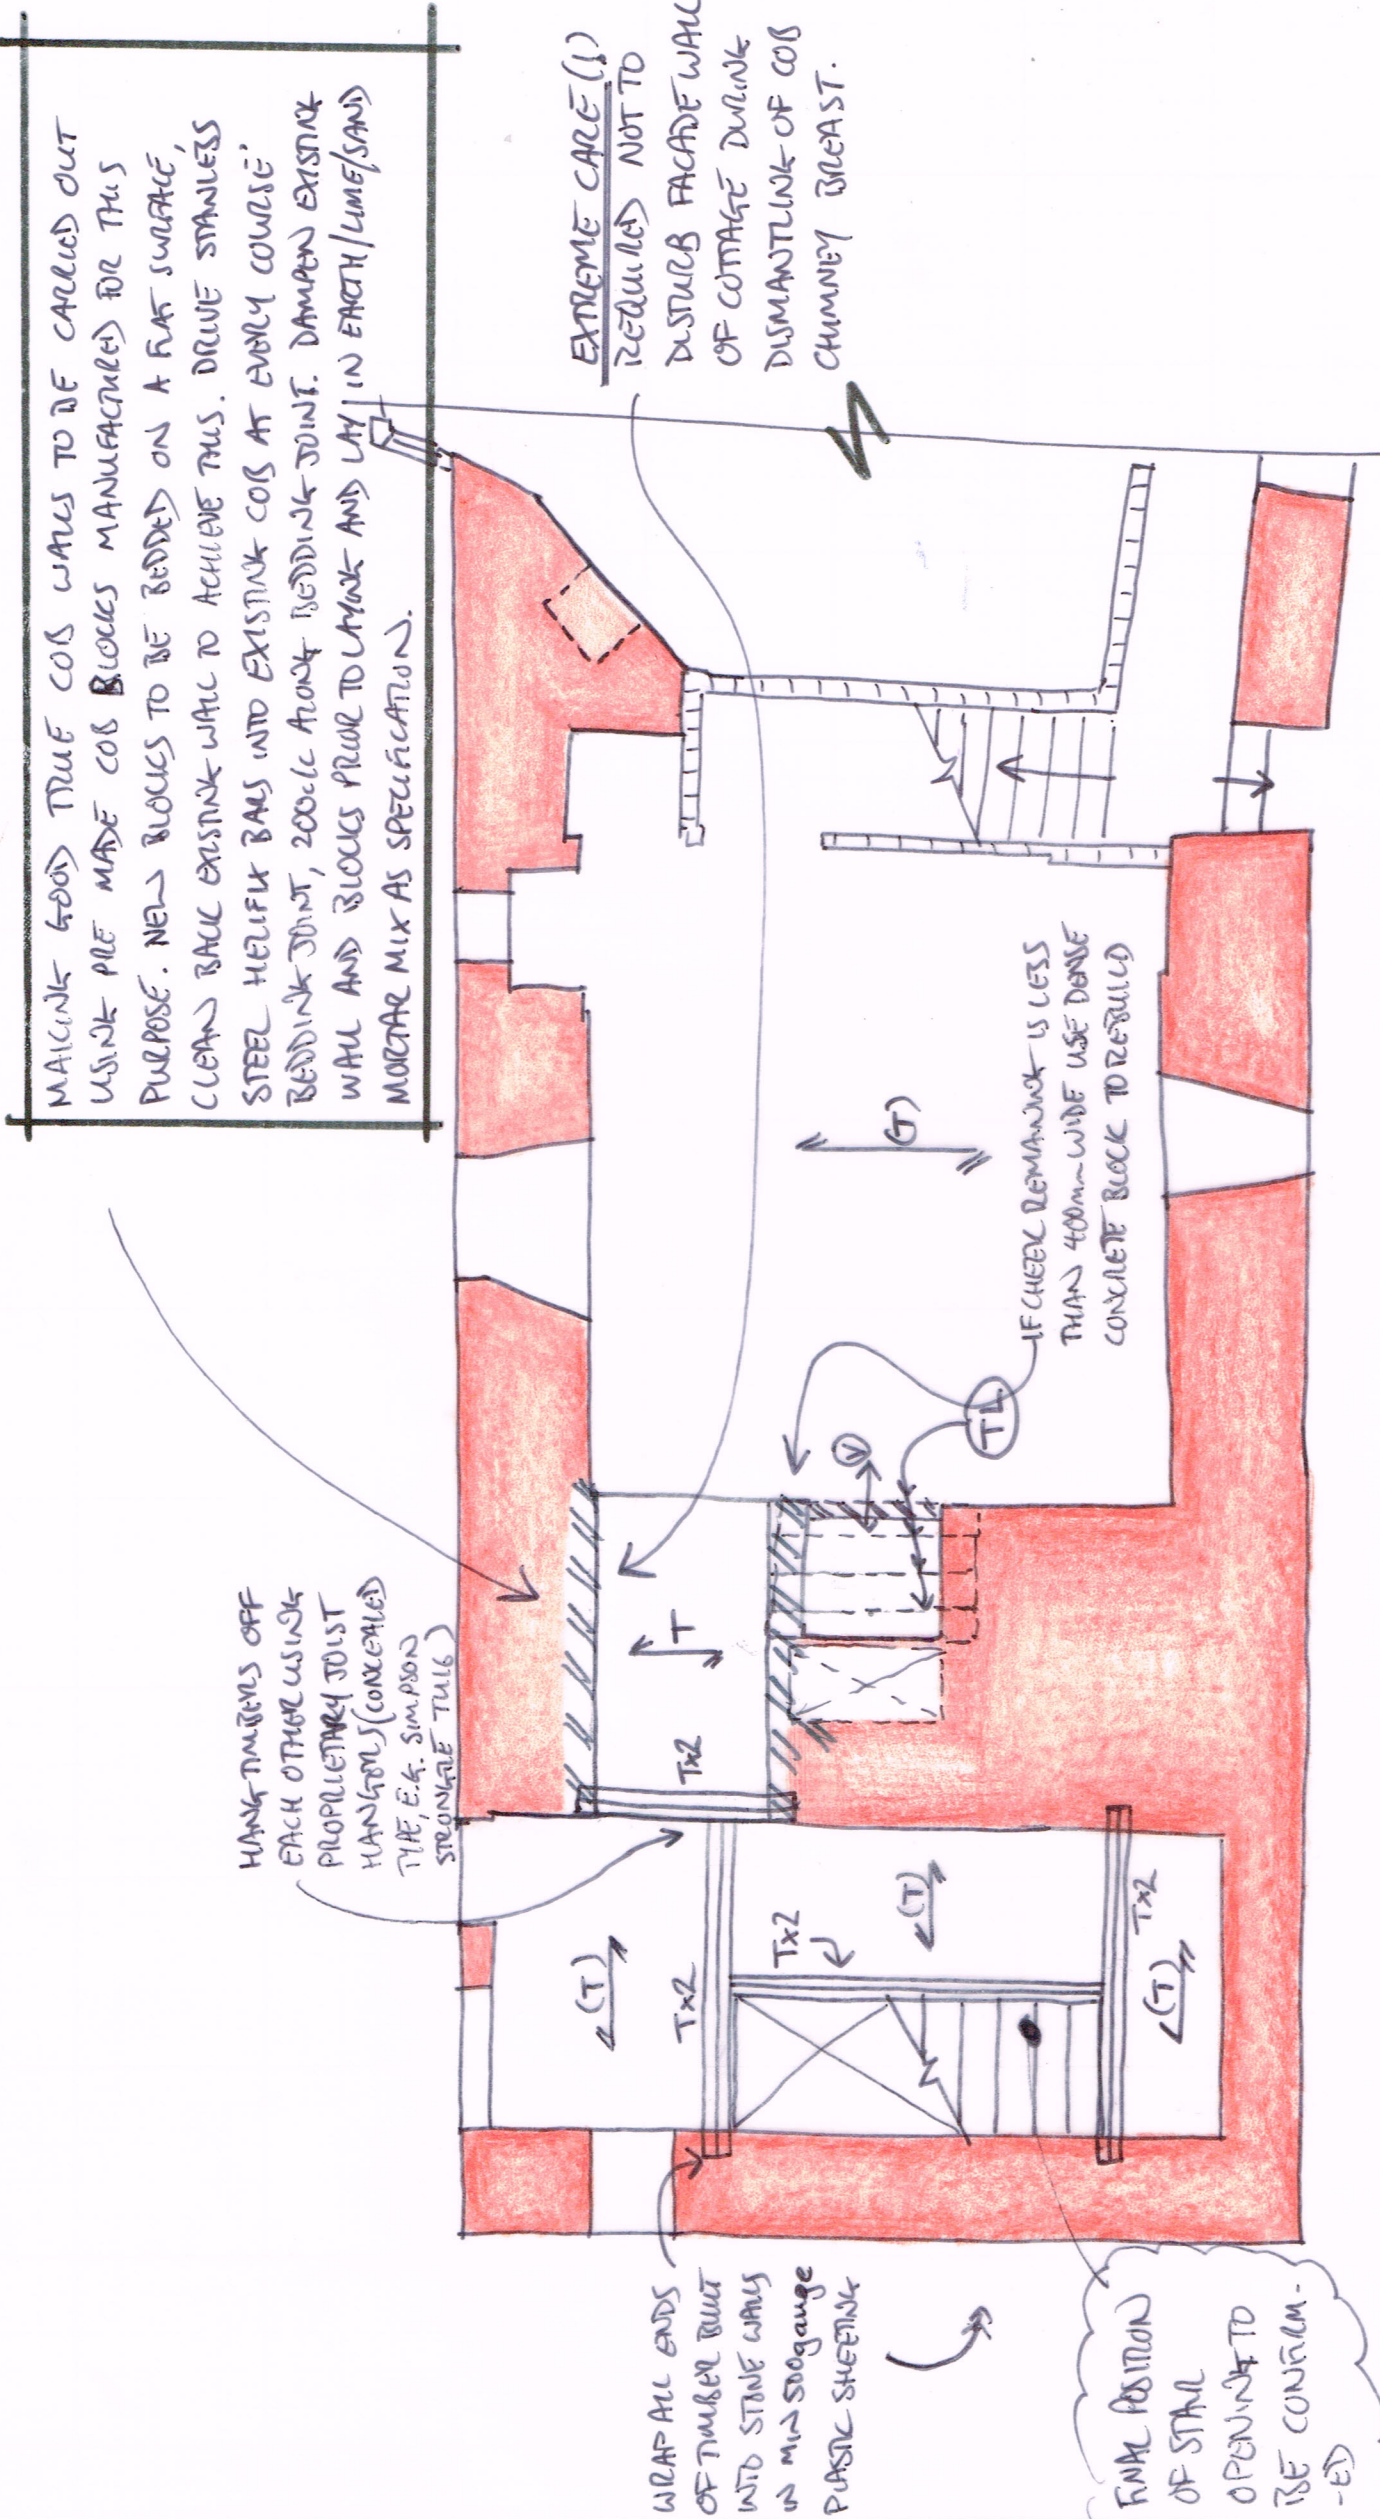 MAKING GOOD TRUE COB WALLS TO BE CARRIED OUT
USING PRE MADE COB BLOCKS MANUFACTURED FOR THIS
PURPOSE. NEW BLOCKS TO BE BEDDED ON A FLAT SURFACE,
CLEAN BACK EXISTING WALL TO ACHIEVE THIS. DRIVE STANLESS
STEEL HELIFIX BARS INTO EXISTING COB AT EVERY COURSE'
BEDDING JOINT, 200c/c ALONG BEDDING JOINT. DAMPEN EXISTING
WALL AND BLOCKS PRIOR TO LAYING AND LAY IN EARTH/LIME/SAND
MORTAR MIX AS SPECIFICATION.
EXTREME CARE (!)
REQUIRED NOT TO
DISTURB FACADE WALL
OF COTTAGE DURING
DISMANTLING OF COB
CHIMNEY BREAST.
HANG TIMBERS OFF
EACH OTHER USING
PROPRIETARY JOIST
HANGORS (CONCEALED
TYPE, E.G. SIMPSON
STRONGTIE TU16)
(T)
IF CHEEK REMAINING IS LESS
THAN 400mm WIDE USE DENSE
CONCRETE BLOCK TO REBUILD
TL
V
T
Tx2
(T)
Tx2
Tx2
(T)
Tx2
(T)
WRAP ALL ENDS
OF TIMBER BUILT
INTO STONE WALLS
IN MIN 500gauge
PLASTIC SHEETING
FINAL POSITION
OF STAIR
OPENING TO
BE CONFIRM-
-ED